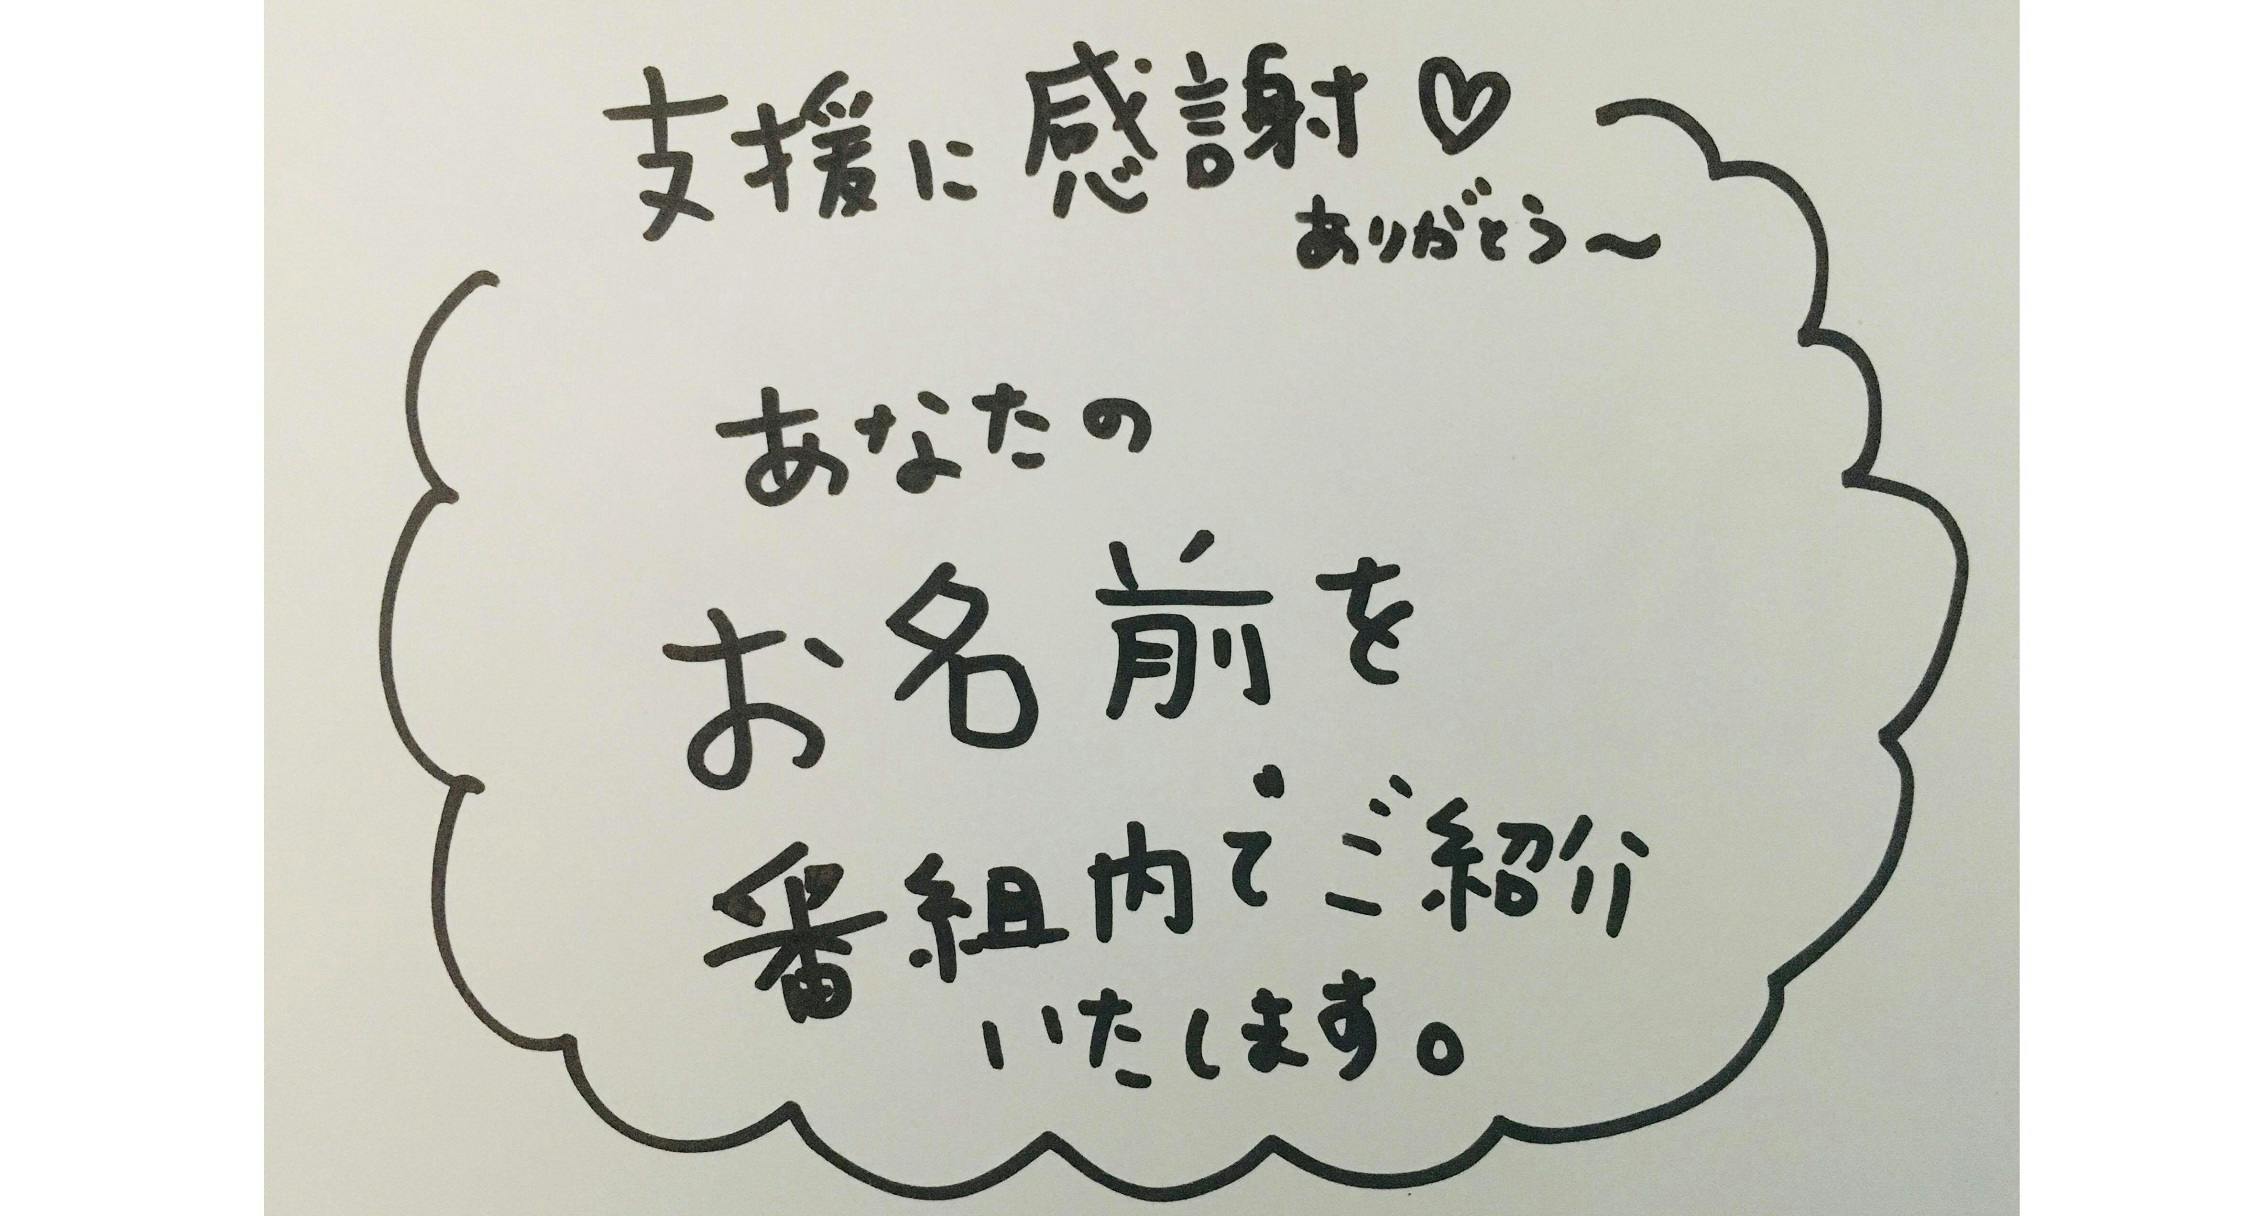 支援に感謝♡
ありがとう〜
あなたの
お名前を
番組内でご紹介
いたします。